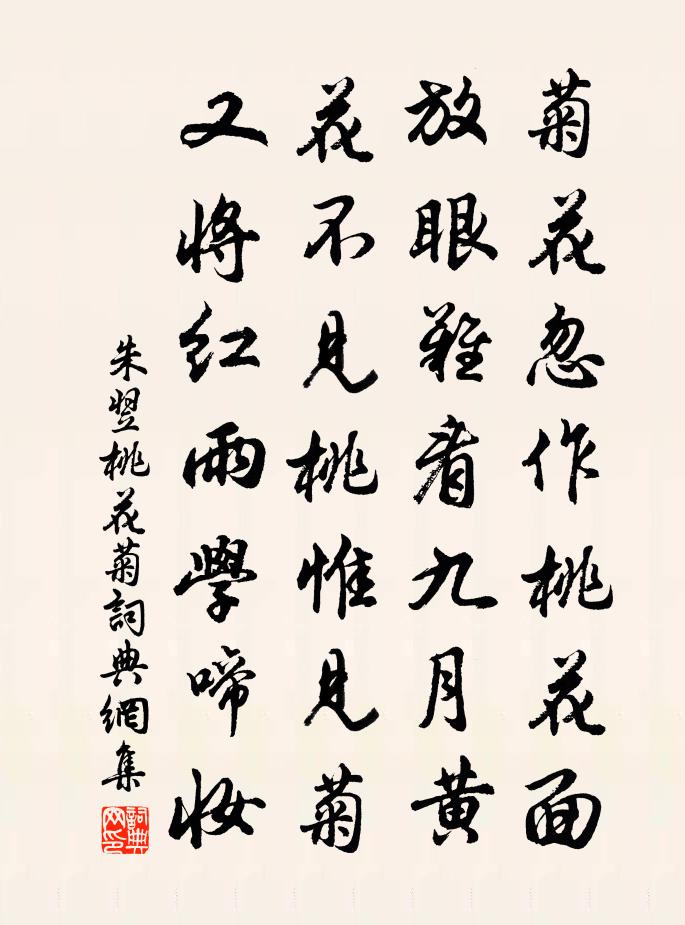 菊花忽作桃花面
放眼難看九月黄
花不見桃惟見菊
又將紅雨學啼妝
朱翌桃花菊詞典網集
詞典网印